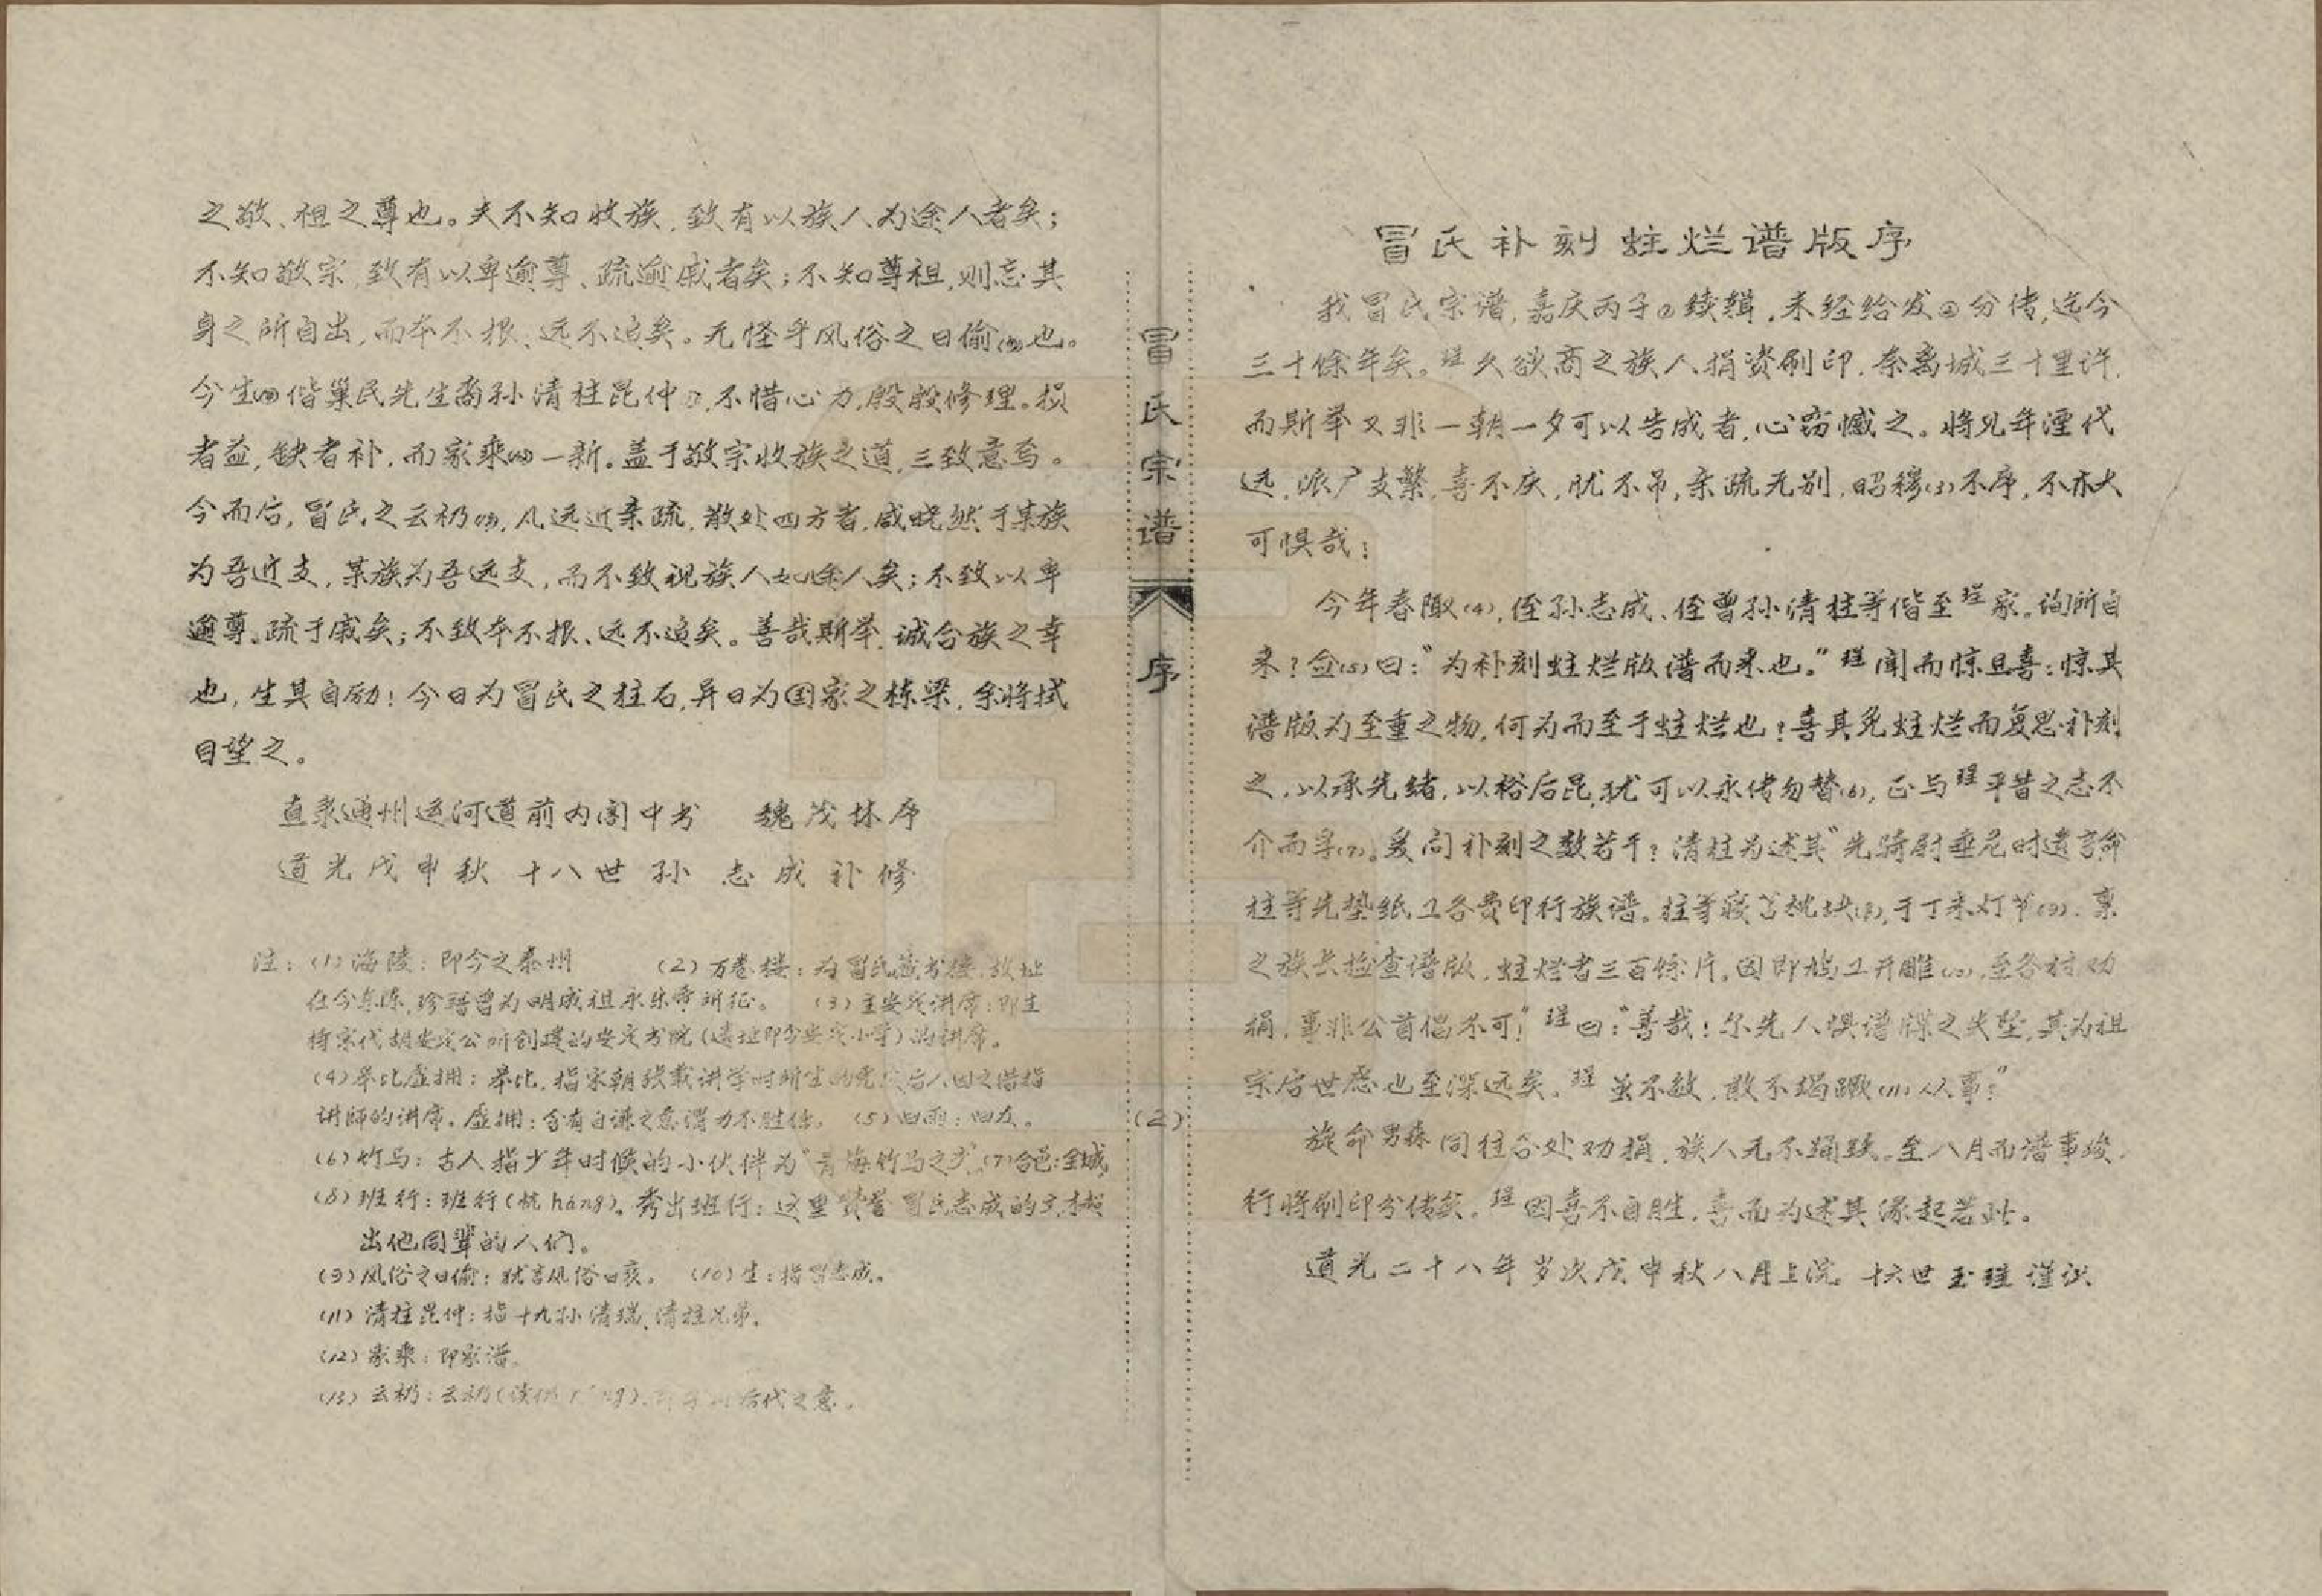 之敬、祖之尊也。夫不知收族,致有以族人为途人者矣;
不知敬宗,致有以卑逾尊、疏逾戚者矣;不知尊祖,则忘其
身之所自出,而本不报、远不追矣。无怪乎风俗之日偷(9)也。
今生(10)偕巢民先生裔孙清柱昆仲,不惜心力,殷殷修理。损
者益,缺者补,而家乘(12)一新。盖于敬宗收族之道,三致意焉。
今而后,冒氏之云礽(13),凡远近亲疏,散处四方者,咸晓然于某族
为吾近支,某族为吾远支,而不致视族人如途人矣;不致以卑
逾尊、疏于戚矣;不致本不报、远不追矣。善哉斯举,诚合族之幸
也,生其自励!今日为冒氏之柱石,异日为国家之栋梁,余将拭
目望之。
直隶通州运河道前内阁中书 魏茂林序
道光戊申秋 十八世孙 志成补修
注:(1)海陵:即今之泰州 (2)万卷楼:为冒氏藏书楼,故址
在今东陈,珍籍曾为明成祖永乐帝所征。 (3)主安定讲席:即主
持宋代胡安定公所创建的安定书院(遗址即今安定小学)的讲席。
(4)皋比虚拥:皋比,指宋朝张载讲学时所坐的虎皮后人因之借指
讲师的讲席。虚拥:含有自谦之意谓力不胜任。 (5)旧雨:旧友。
(6)竹马:古人指少年时候的小伙伴为“青梅竹马之交”。(7)合邑:全城
(8)班行:班行(杭háng)。秀出班行:这里赞誉冒氏志成的文才超
出他同辈的人们。
(9)风俗之日偷:犹言风俗日衰。 (10)生:指冒志成。
(11)清柱昆仲:指十九孙清瑞、清柱兄弟。
(12)家乘:即家谱。
(13)云礽:云礽(读仍),后代之意。
冒氏宗谱
序
(2)
冒氏补刻蛀烂谱版序
我冒氏宗谱,嘉庆丙子续辑,未经给发(2)分传,迄今
三十馀年矣。瑆久欲商之族人捐资刷印,奈离城三十里许,
而斯举又非一朝一夕可以告成者,心窃憾之。将见年湮代
远,派广支繁,喜不庆,忧不吊,亲疏无别,昭穆(3)不序,不亦大
可惧哉!
今年春陬(4),侄孙志成、侄曾孙清柱等偕至瑆家。询所自
来?佥(5)曰:“为补刻蛀烂版谱而来也。”瑆闻而惊且喜:惊其
谱版为至重之物,何为而至于蛀烂也?喜其免蛀烂而复思补刻
之,以承先绪,以裕后昆,犹可以永传勿替(6),正与瑆平昔之志不
介而孚(7)。爰问补刻之数若干?清柱为述其“先骑尉垂危时遗言命
柱等先垫纸工各费印行族谱。柱等寝苫枕块(8),于丁未灯节(9),禀
之族长检查谱版,蛀烂者三百馀片,因即鸠工开雕(10),至各村劝
捐,事非公首倡不可!”瑆曰:“善哉!尔先人惧谱牒之失坠,其为祖
宗后世虑也至深远矣。瑆虽不敏,敢不竭蹶(11)从事!”
旋命男森同往各处劝捐,族人无不踊跃。至八月而谱事竣,
行将刷印分传矣。瑆因喜不自胜,喜而为述其缘起若此。
道光二十八年岁次戊申秋八月上浣 十六世玉瑆谨识